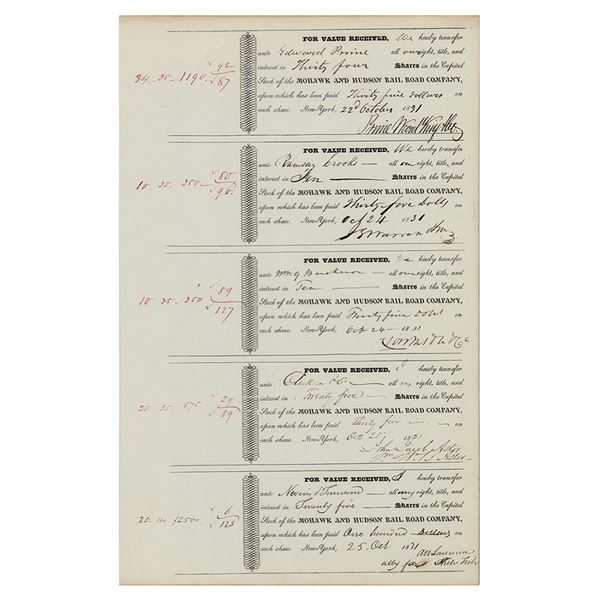 FOR VALUE RECEIVED, We hereby transfer
unto Edward Prime all our right, title, and
interest in Thirty four Shares in the Capital
34 - 35 - 1190. 92/87
Stock of the MOHAWK AND HUDSON RAIL ROAD COMPANY,
upon which has been paid Thirty five Dollars on
each share. New-York, 22d October 1831
Prime Ward King &Co.
FOR VALUE RECEIVED, We hereby transfer
unto Ramsay Crooks all our right, title, and
interest in Ten Shares in the Capital
10. 35. 350. 80/96
Stock of the MOHAWK AND HUDSON RAIL ROAD COMPANY,
upon which has been paid Thirty-five Dolls on
each share. New-York, Oct 24 1831
Warren
FOR VALUE RECEIVED, We hereby transfer
unto Wm G all our right, title, and
interest in Ten Shares in the Capital
10 - 35 - 350 89/127
Stock of the MOHAWK AND HUDSON RAIL ROAD COMPANY,
upon which has been paid Thirty five Dolls on
each share. New-York, Oct 24 - 1831
FOR VALUE RECEIVED, I hereby transfer
unto Clark & Co all my right, title, and
interest in Twenty five Shares in the Capital
25. 35. 875 29/89
Stock of the MOHAWK AND HUDSON RAIL ROAD COMPANY,
upon which has been paid thirty five on
each share. New-York, Oct 25 1831
John Jacob Astor
Wm B Astor
FOR VALUE RECEIVED, I hereby transfer
unto Nevins & Townsend all my right, title, and
interest in Twenty five Shares in the Capital
25. 100 $2500. 6/123
Stock of the MOHAWK AND HUDSON RAIL ROAD COMPANY,
upon which has been paid One hundred Dollars on
each share. New-York, 25. Oct 1831
Lawrence
atty for